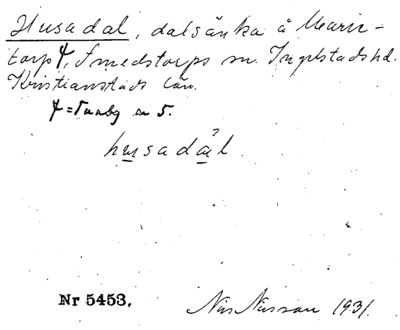 Husadal, dalsänka å Marie-
torp ⚳, Smedstorps sn. Ingelstads hd.
Kristianstads län.
= Tunby n 5.
husadal
Nr 5453. 1931.